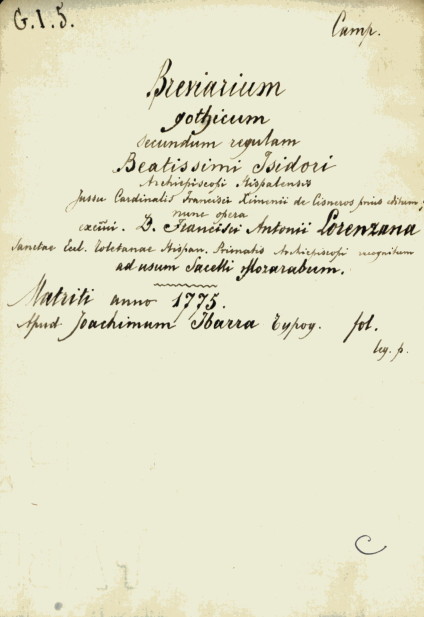 G.I.5.
Camp.
Breviarium
gothicum
secundum regulam
Beatissimi Isidori
Archiepiscopi Hispalensis
Jussu Cardinalis Francisci Ximenii de Cisneros prius editum;
nunc opera
excm̃i. D. Francisci Antonii Lorenzana
Sanctae Eccl. Toletanae Hispan. Primatis Archiepiscopi recognitum
ad usum Sacelli Mozarabum.
Matriti anno 1775.
Apud Joachimum Ibarra Typog. fol.
leg. p.
C